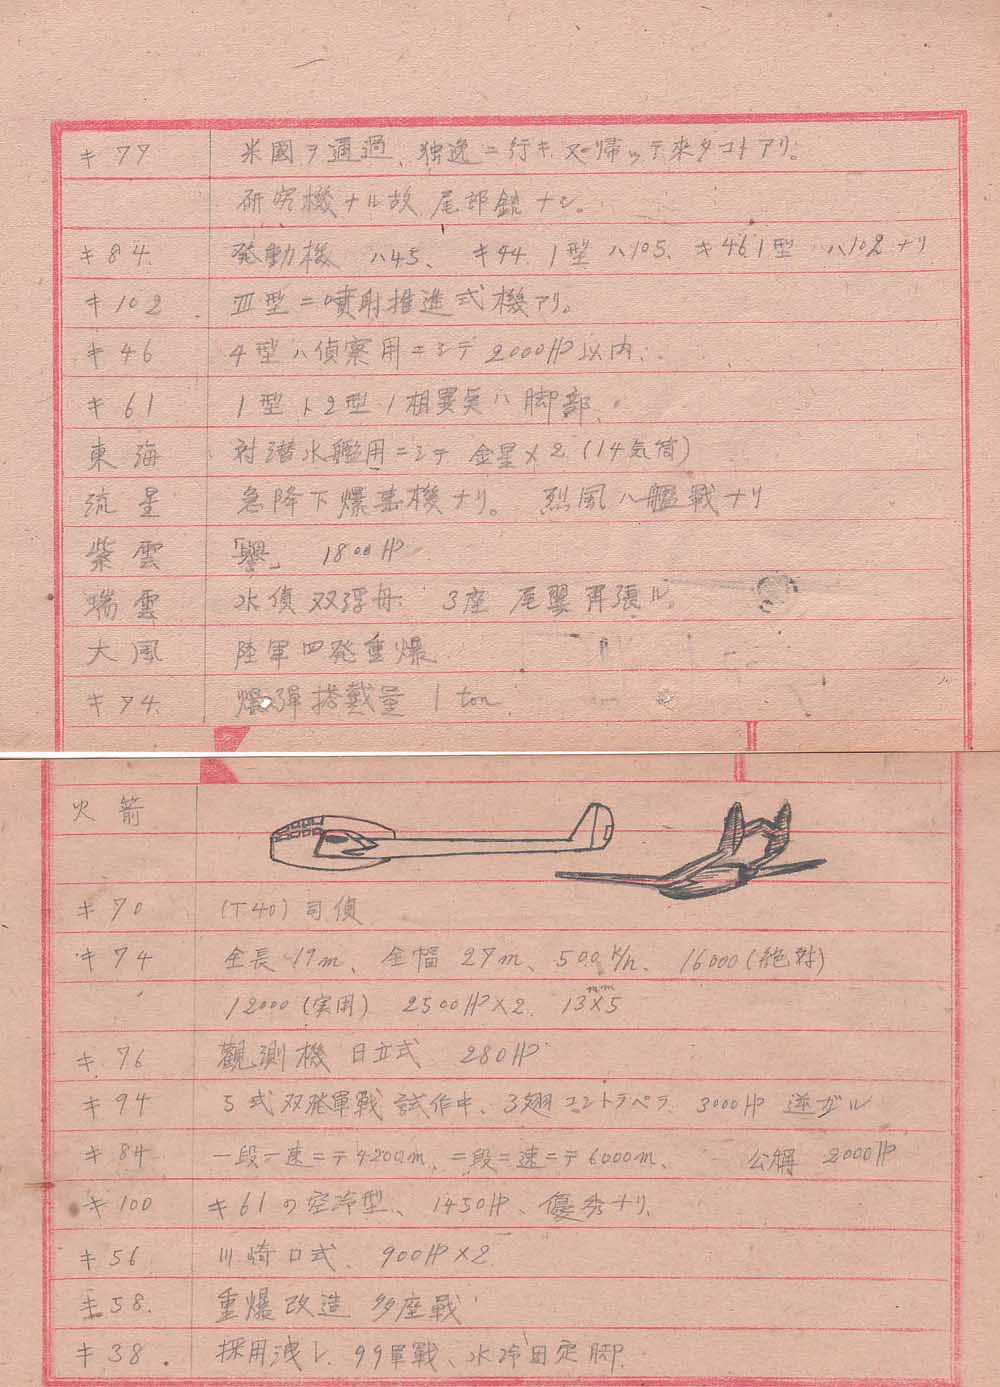 キ77 米國ヲ通過、独逸ニ行キ又帰ッテ來タコトアリ。
研究機ナル故 尾部銃ナシ。
キ84. 発動機 ハ45、キ44.1型ハ105、キ46.1型 ハ102ナリ
キ102 Ⅲ型ニ噴射推進式機アリ。
キ46 4型ハ偵察用ニシテ2000HP以内.
キ61 1型ト2型ノ相異矣ハ脚部、
東海 対潜水艦用ニシテ 金星×2(14気筒)
流星 急降下爆撃機ナリ。 烈風ハ艦戰ナリ
紫雲 「譽」 1800HP
瑞雲 水偵双浮舟. 3座 尾翼 張ル。
大風 陸軍四発重爆
キ74. 爆弾搭載量 1 ton
火箭
キ70 (T40)司偵
キ74 全長 17m、全幅 27m、500 K/h、16000(絶対)
12000(実用) 2500HP×2. 13mm×5
キ76 觀測機 日立式 280HP
キ94 5式双発單戰 試作中、3翅コントラペラ 3000HP 逆ガル
キ84 一段一速ニテ4200m、二段二速ニテ6000m、 公稱 2000HP
キ100 キ61の空冷型、1450HP、優秀ナリ、
キ56 川崎ロ式、900HP×2
キ58. 重爆改造 多座戰
キ38. 採用洩レ、99單戰、水冷固定脚.